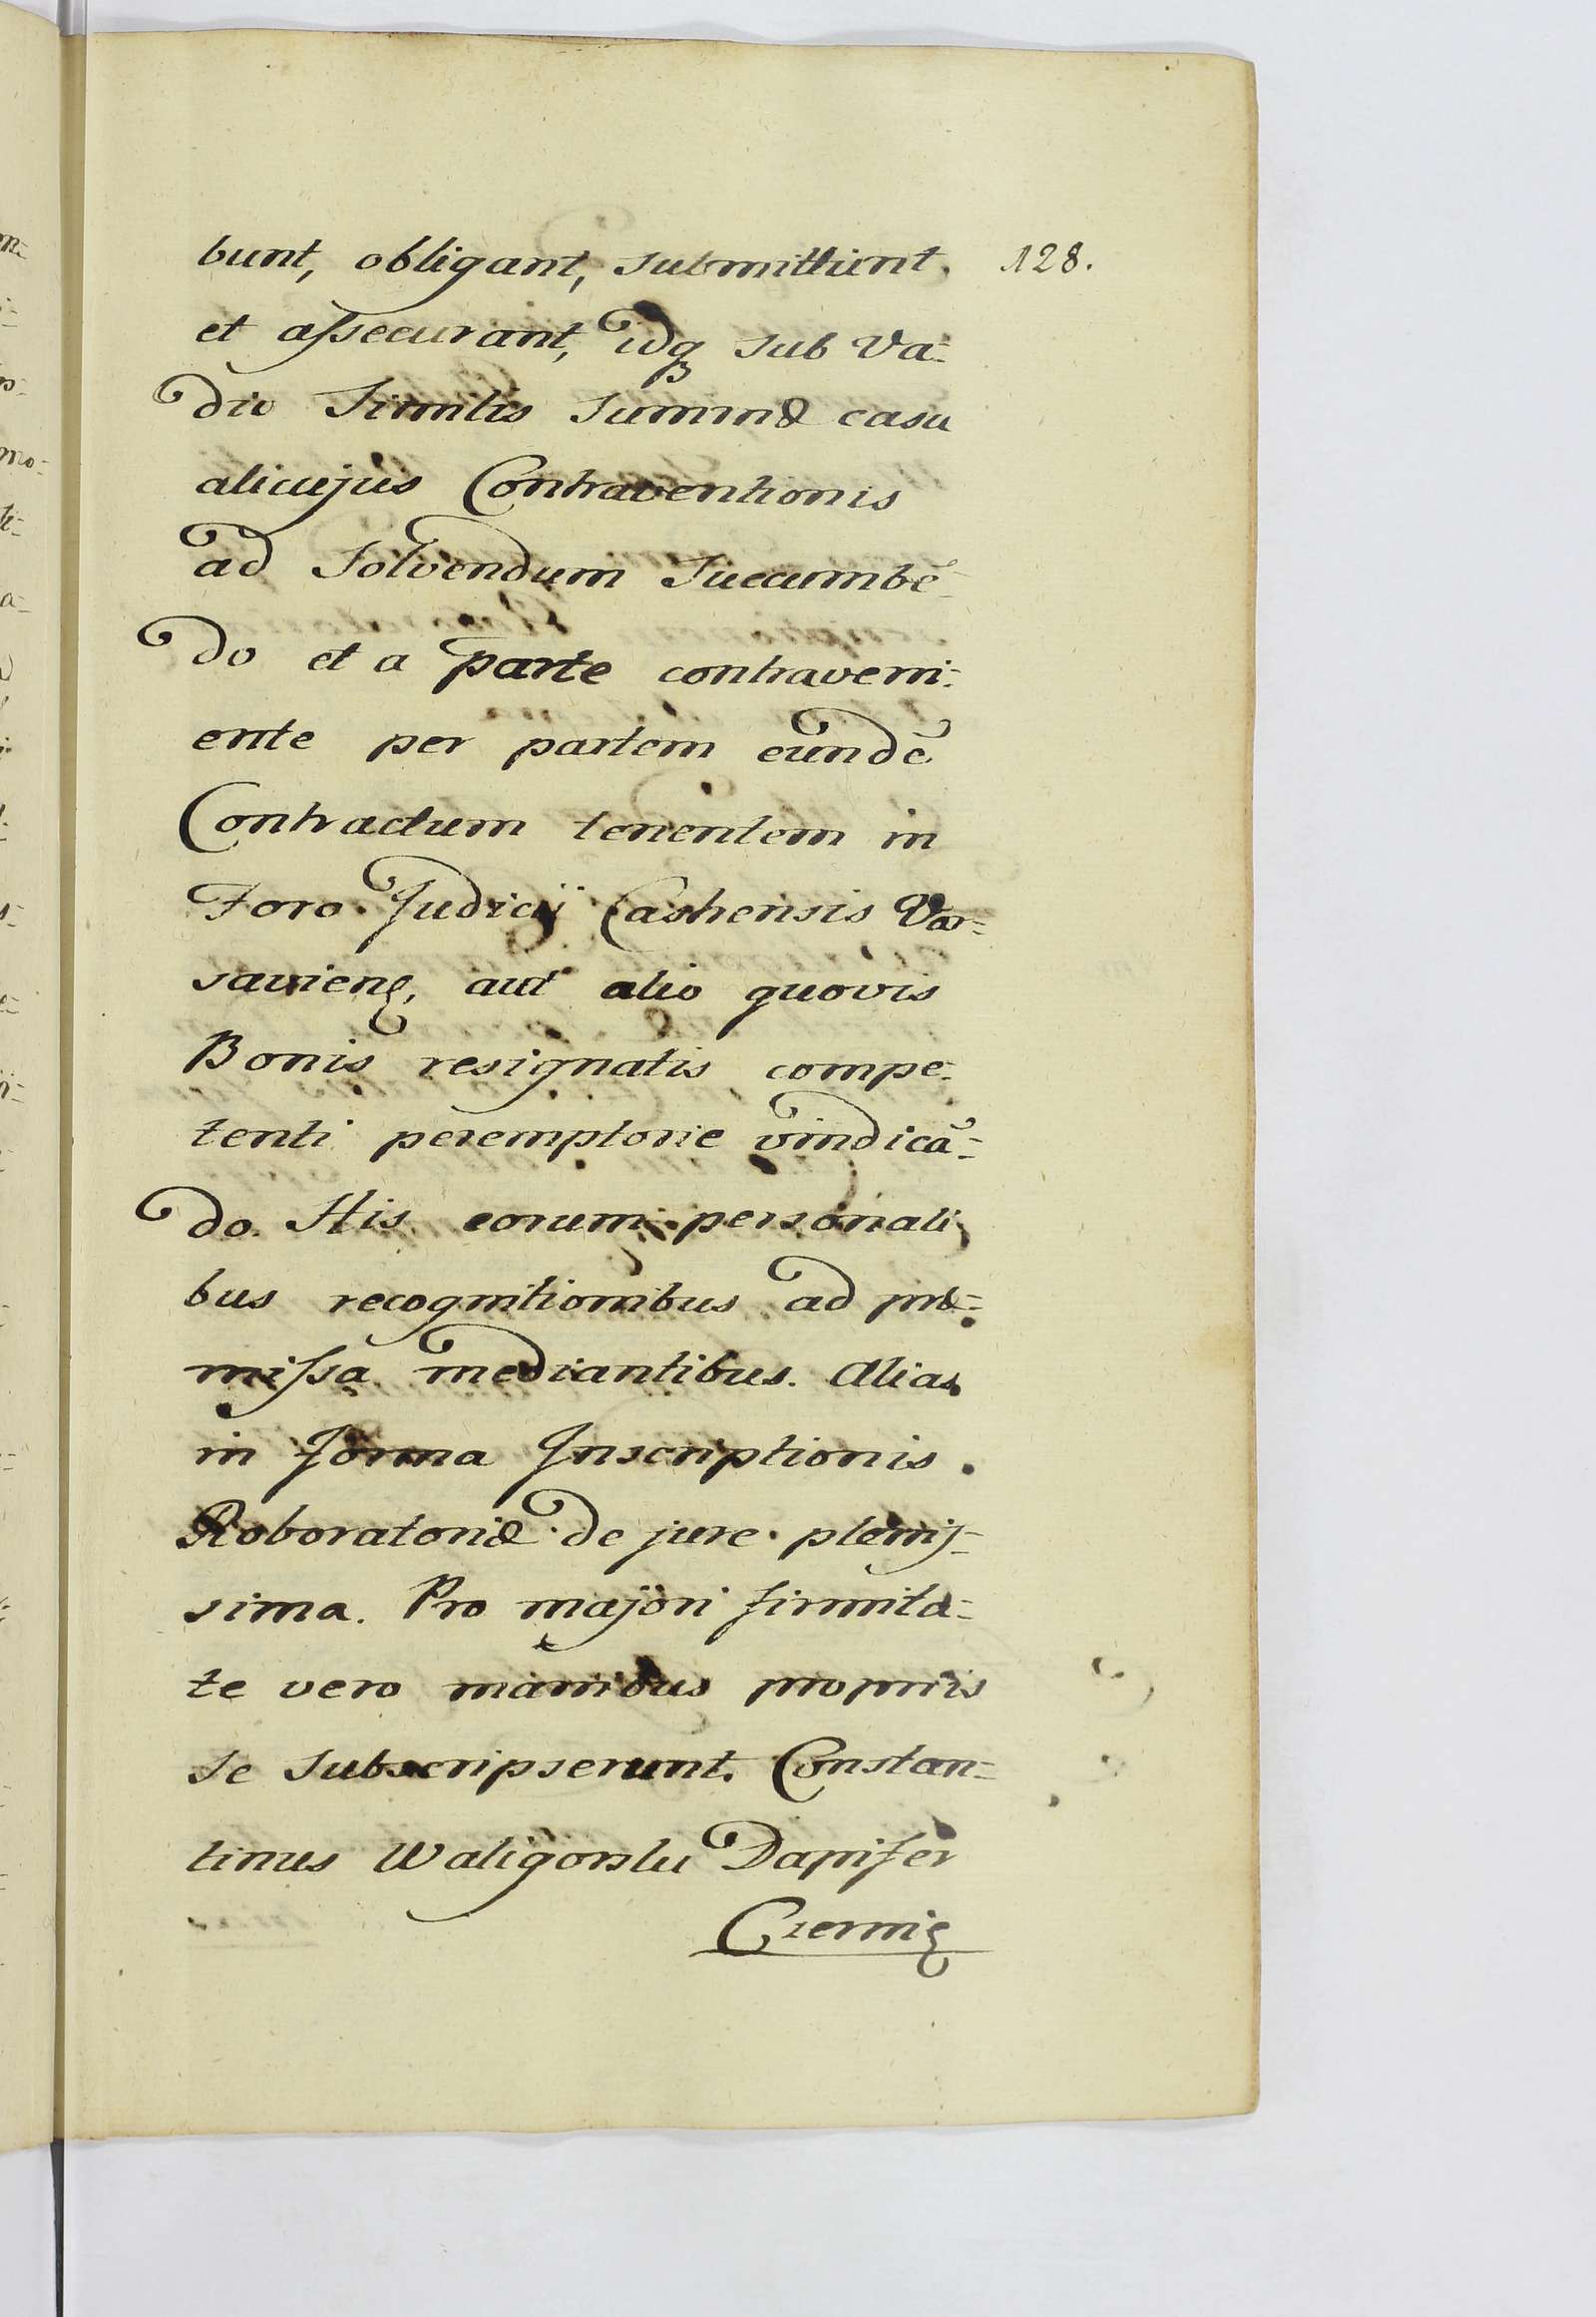 bunt, obligant, submittunt 128.
et aſsecurant, idq₃ sub Va-
dio Similis Summæ casu
alicujus Contraventionis
ad Solvendum Succumbē-
do et a parte contraveni-
ente per partem eundē
Contractum tenentem in
Foro Judicij Castrensis Var-
saviens, aut alio quovis
Bonis resignatis compe-
tenti peremptorie vindicā-
do. His eorum personali
bus recognitionibus ad præ-
miſsa mediantibus. Alias
in forma Inscriptionis
Roboratoriæ de jure plenis-
sima. Pro majori firmita-
te vero manibus proprijs
se subscripserunt. Constan-
tinus Waligorski Dapifer
Czernię